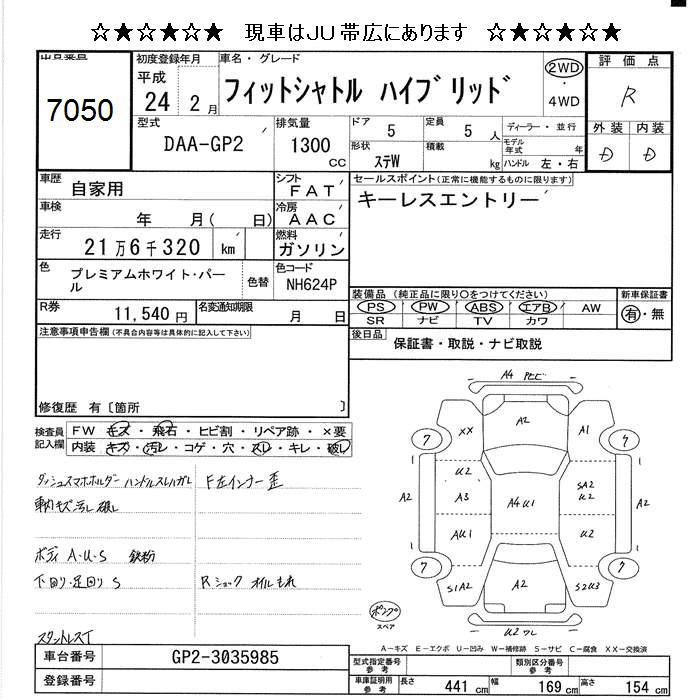 ☆★☆★☆★ 現車はJU帯広にあります ☆★☆★☆★
出品番号
7050
初度登録年月
平成
24 年 2 月
車名・グレード
フィットシャトル ハイブリッド
2WD
・
4WD
評価点
R
外装 内装
D D
型式
DAA-GP2
排気量
1300
CC
ドア 5
定員 5 人
形状 ステW
積載 kg
ディーラー・並行
モデル年式 年
ハンドル 左・右
車歴
自家用
シフト
FAT
車検
年 月( 日)
冷房
AAC
走行
21万6千320 km
燃料
ガソリン
色
プレミアムホワイト・パール
色替
色コード
NH624P
R券
11,540円
名変通知期限
月 日
セールスポイント(正常に機能するものに限ります)
キーレスエントリー
装備品 (純正品に限り○をつけてください)
PS PW ABS エアB AW
SR ナビ TV カワ
新車保証書
有・無
後日品
保証書・取説・ナビ取説
注意事項申告欄(不具合内容等は具体的に記入して下さい)
修復歴 有〔箇所 〕
検査員記入欄
FW キズ・飛石・ヒビ割・リペア跡・×要
内装 キズ・汚レ・コゲ・穴・スレ・キレ・破レ
ダッシュスマホホルダー ハンドルスレハガレ
車内キズ汚し破し
ボディ A・U・S 鉄粉
下回り・足回り S
スタントレスT
F左インナー歪
Rショックオイルもれ
A4 飛ビ
A2
XX
A1
7
7
U2
A3
AU1
A2
A4U1
SA2
U2
U2
A2
7
7
S1A2
A2
S2U3
ポンプ
スペア
U2ワレ
A-キズ E-エクボ U-凹み W-補修跡 S-サビ C-腐食 XX-交換済
車台番号
GP2-3035985
登録番号
型式指定番号
参考
類別区分番号
参考
車庫証明用
参考
長さ 441 cm
幅 169 cm
高さ 154 cm